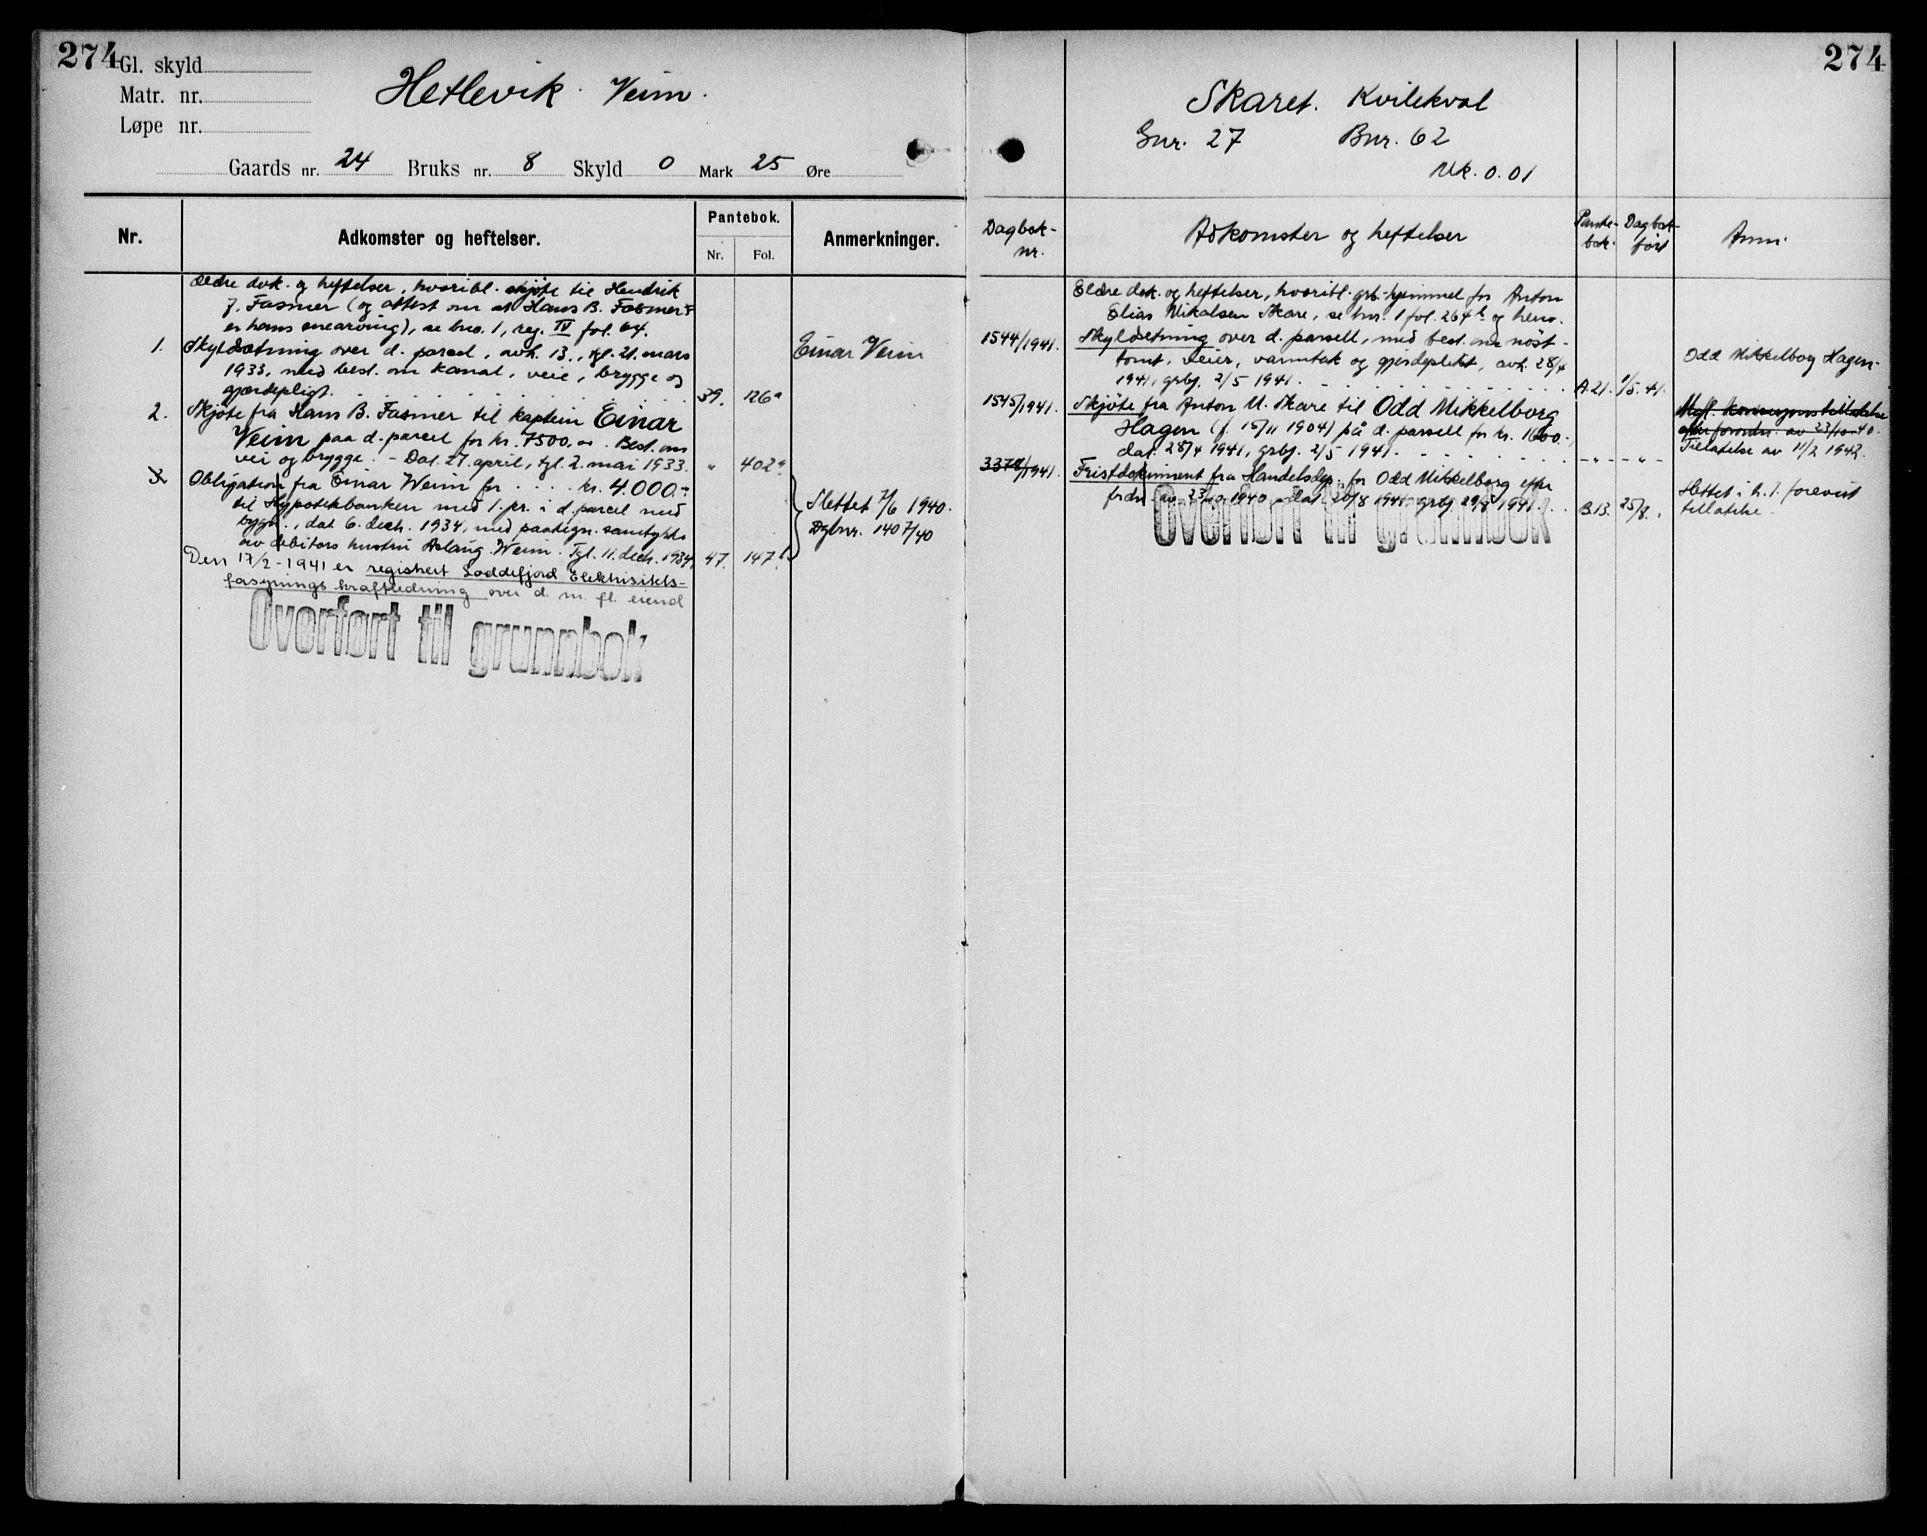 274
Gl. skyld
Matr. nr.
Løpe nr.
Hetlevik. Veim.
Gaards nr. 24 Bruks nr. 8 Skyld 0 Mark 25 Øre
Nr.
Adkomster og heftelser.
Pantebok.
Nr. Fol.
Anmerkninger.
Eldre dok. og heftelser, hvoribl. skjøte til Hendrik
J. Fasmer (og attest om at Hans B. Fasmer
er hans enearving), se bno. 1, reg. IV fol. 64.
1. Skyldsetning over d. parcel, avh. 13., tgl. 21. mars
1933, med best. om kanal, veie, brygge og
gjærdepligt. 39. 126a
Einar Veim
2. Skjøte fra Hans B. Fasmer til kaptein Einar
Veim paa d. parcel for kr. 7500,00. Best. om
vei og brygge. - Dat. 27. april, tgl. 2. mai 1933. " 402a
3. Obligation fra Einar Weim for kr. 4.000,-
til Hypotekbanken med 1. pr. i d. parcel med
bygn., dat. 6. decb. 1934, med paategn. samtykke
av debitors hustru Aslaug Weim. Tgl. 11. decb. 1934. 47. 147b
Slettet 7/6 1940.
Dgbnr. 1407/40
Den 17/2-1941 er registrert Loddefjord Elektrisitets-
forsynings kraftledning over d. m. fl. eiend
Overført til grunnbok
274
Skaret. Kvilekval
Gnr. 27 Bnr. 62
Mk. 0.01
Dagbok-
nr.
Adkomster og heftelser
Pante-
bok.
Dagbok-
ført
Anm.
Eldre dok. og heftelser, hvoribl. grb. hjemmel for Anton
Elias Nikolsen Skare, se bnr. 1 fol. 264b og henv.
1544/1941. Skyldsetning over d. parsell, med best. om nøst-
tomt, veier, vanntak og gjerdeplikt, avh. 28/4
1941, grbg. 2/5 1941. A.21. 1/5.41.
Odd Mikkelborg Hagen.
1545/1941. Skjøte fra Anton N. Skare til Odd Mikkelborg
Hagen (f. 15/11 1904) på d. parsell for kr. 1600.-
dat. 28/4 1941, grbg. 2/5 1941. - " - - " -
Mgl. konsesjonstillatelse
efter forordn. av 23/10-40.
Tillatelse av 11/2 1942.
3378/1941. Fristdokument fra Handelsdep. for Odd Mikkelborg efter
fordn. av 23/10 1940 dat. 20/8 1941 grbg 29/8 1941. B.13. 25/8.
Slettet i h. t. forevist
tillatelse.
Overført til grunnbok